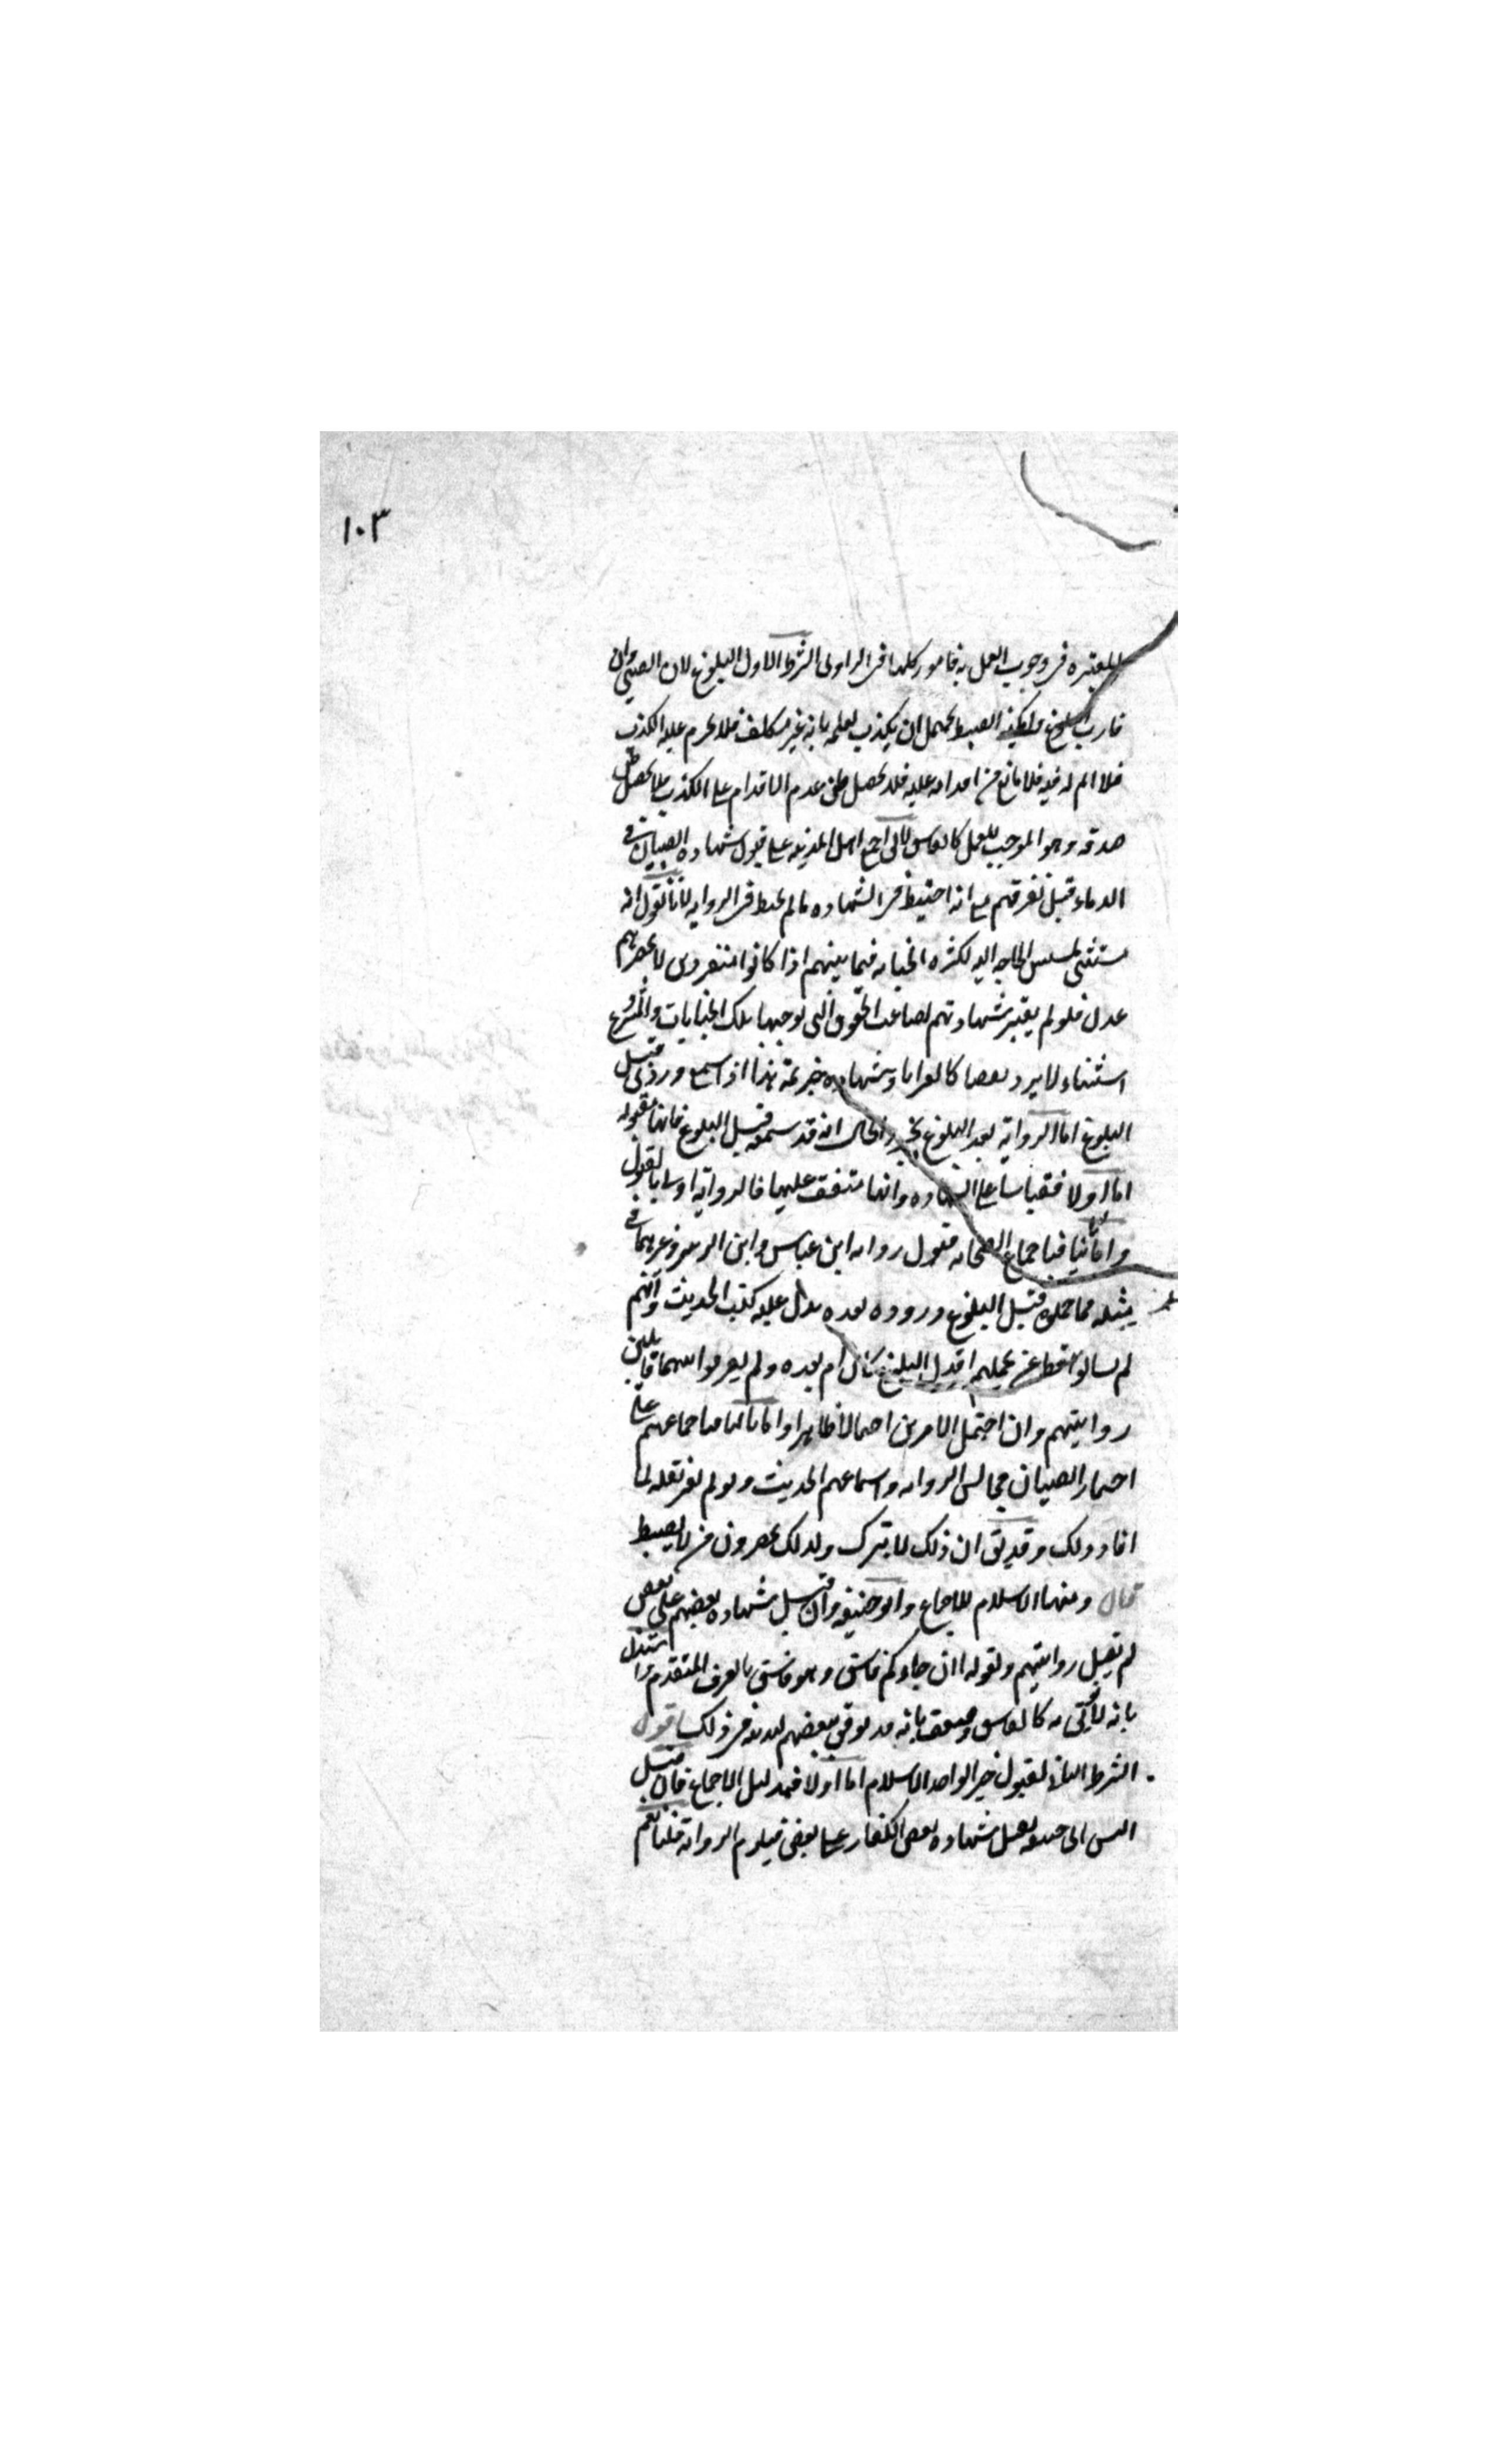 ١٠٣
المعتبره في وجوب العمل به فامور كلها في الراوى الشرط الاول البلوغ لان الصبي وان
قارب البلوغ وامكنه الضبط يحتمل ان يكذب لعلمه بانه غير مكلف فلا يحرم عليه الكذب
فلا اثم له فيه فلا مانع من اقدامه عليه فلا يحصل ظن عدم الاقدام على الكذب فلا يحصل ظن
صدقه وهو الموجب للعمل كالفاسق لا يق اجمع اهل المدينه على قبول شهاده الصبيان في
الدماء قبل تفرقهم مع انه احتيط في الشهاده ما لم يحتط في الروايه لانا نقول انه
مستثنى لمسيس الحاجه اليه لكثره الجنايه فيما بينهم اذا كانوا منفردين لا يحضرهم
عدل فلو لم يعتبر شهادتهم لضاعت الحقوق التي توجبها تلك الجنايات والمشروع
استثناء لا يرد نقضا كالعرايا وشهاده خزيمة هذا اذا سمع وروى قبل
البلوغ اما الرواية بعد البلوغ والحال انه قد سمعه قبل البلوغ فانها مقبوله
اما اولا فقياسا على الشهاده وانها متفق عليها فالرواية اولى بالقبول
واما ثانيا فباجماع الصحابه قبول روايه ابن عباس وابن الزبير وغيرهما في
مثله مما تحملوه قبل البلوغ ورووه بعده يدل عليه كتب الحديث وانهم
لم يسالوا قط عن تحملهم اقبل البلوغ كان ام بعده ولم يفرقوا بينهما قابلين
روايتهم وان احتمل الامرين احتمالا ظاهرا واما ثالثا فباجماعهم على
احضار الصبيان مجالس الروايه واسماعهم الحديث ولو لم يقبل نقله لما
افاد ذلك وقد يق ان ذلك للتبرك ولذلك يحضرون من لا يضبط
قال ومنها الاسلام للاجماع وابو حنيفه وان قبل شهاده بعضهم على بعض
لم يقبل روايتهم ولقوله ان جاءكم فاسق وهو فاسق بالعرف المتقدم واستدل
بانه لا يوثق به كالفاسق وضعف بانه قد يوثق ببعضهم لتدينه في ذلك اقول
الشرط الثانى لقبول خبر الواحد الاسلام اما اولا فبدليل الاجماع فان قيل
اليس ابى حنيفه يقبل شهاده بعض الكفار على بعض فيلزم الروايه قلنا نعم